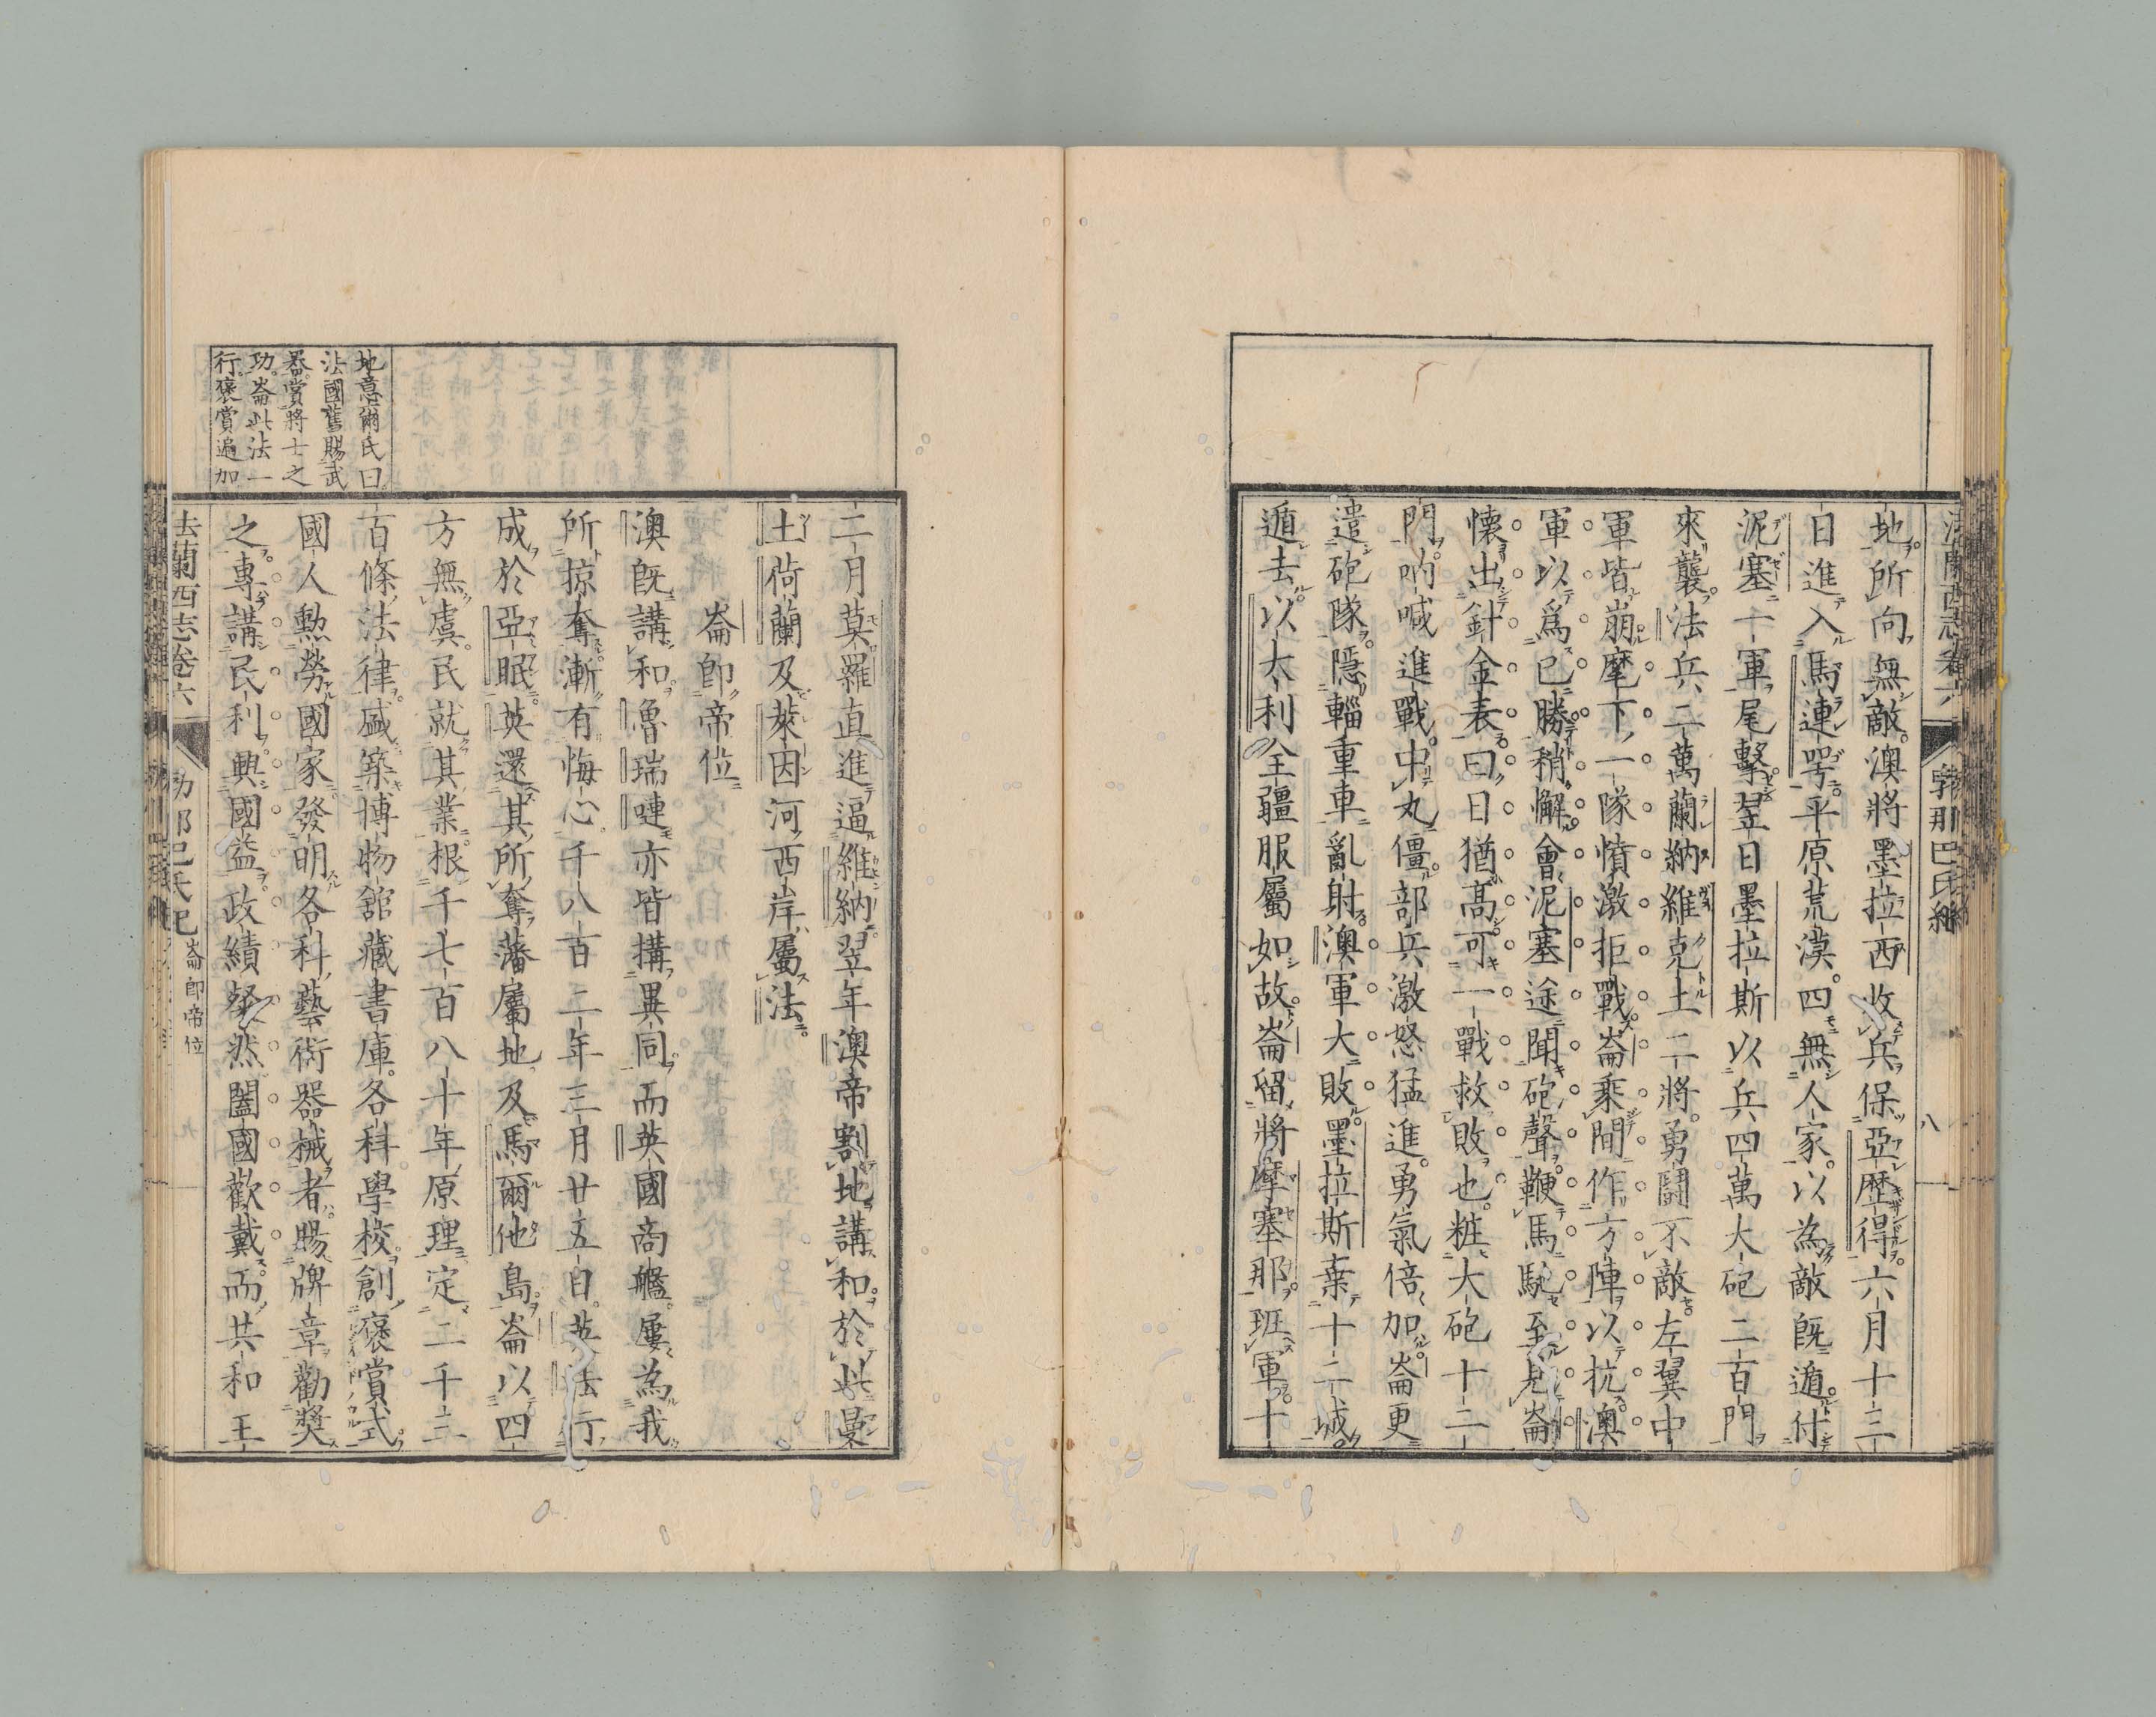 地所向無敵澳將墨拉西收兵保亞歷得六月十二
日進入馬連喝平原荒漠四無人家以為敵既遁付
泥塞一軍尾擊翌日墨拉斯以兵四萬大砲二百門
來襲法兵二萬蘭納維克土二將勇鬪不敵左翼中
軍皆崩麾下一隊憤激拒戰崙乘間作方陣以抗澳
軍以爲已勝稍懈會泥塞途聞砲聲鞭馬馳至見崙
懷出針金表曰日猶高可一戰救敗也粧大砲十二
門吶喊進戰中丸僵部兵激怒猛進勇氣倍加崙更
遣砲隊隱輜重車亂射澳軍大敗墨拉斯棄十二城
遁去以太利全疆服屬如故崙留將摩塞那班軍十
八
二月莫羅直進逼維納翌年澳帝割地講和於此曼
土荷蘭及萊因河西岸屬法
崙即帝位
澳既講和魯瑞嗹亦皆搆異同而英國商艦屢為我
所掠奪漸有悔心千八百二年三月廿五日英法行
成於亞眠英還其所奪藩屬地及馬爾他島崙以四
方無虞民就其業根千七百八十年原理定二千三
百條法律盛築博物館藏書庫各科學校創褒賞式
國人勲勞國家發明各科藝術器械者賜牌章勸奬
之專講民利興國益政績粲然闔國歡戴而共和王
地意爾氏曰
法國舊賜武
器賞將士之
功崙此法一
行褒賞遍加
法蘭西志卷六
崙即帝位